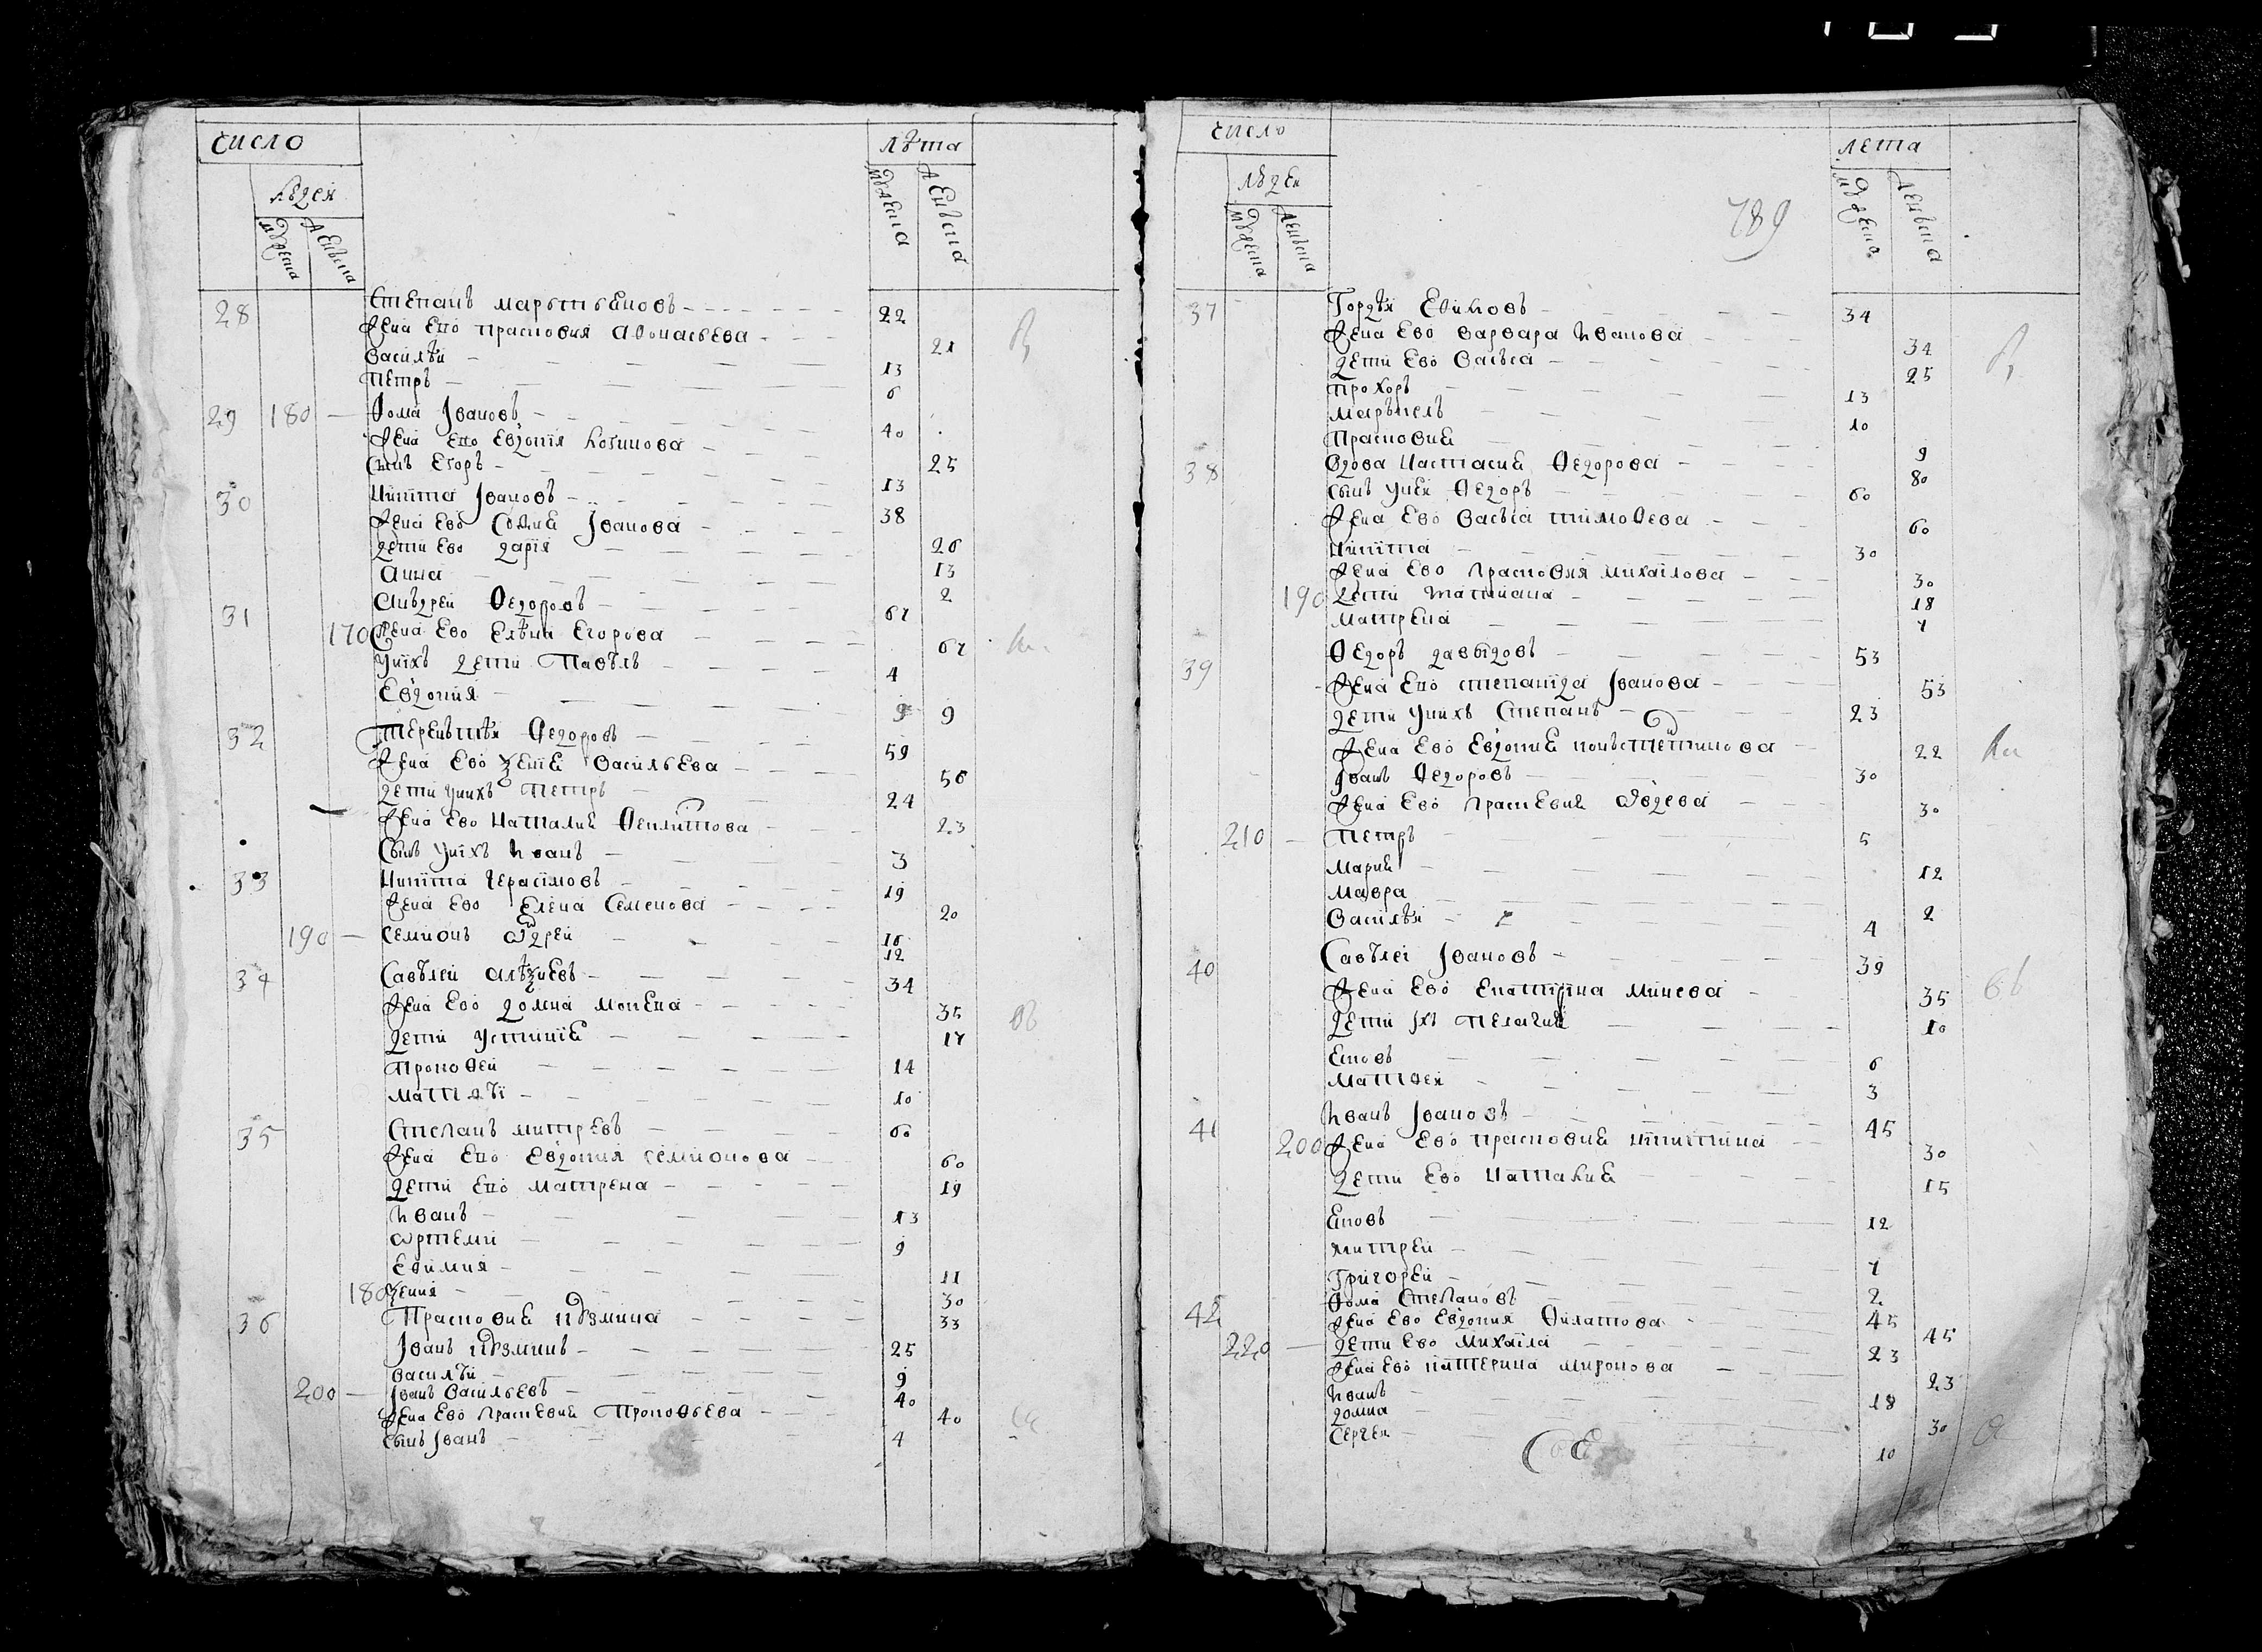 число
лѣта
людей
мужеска
женска
мужеска
женска
28 Степанъ мартьяновъ 22
жена ево прасковия Афонасьева 21
Василѣй 13
Петръ 6
29 180 Фома Iвановъ 40
жена ево Евдокiя
25
Снъ Егоръ 13
30 Никита Iвановъ 38
жена ево София Iванова 26
дети ево дария 13
Анна 2
31 Андрей Федоровъ 67
170 жена ево Елѣна Егорова 67
уних дети Павѣлъ 4
Евдокия 9
32 Терентѣй Федоровъ 59
жена ево Васильева 56
дети унихъ Петръ 24
жена ево Наталия 23
Снъ унихъ Иванъ 3
33 Никита Герасiмовъ 19
жена ево Елена Семенова 20
190 Семионъ 16
12
34 Савѣлей 34
жена ево домна мокѣева 35
дети Устиния 17
Прокофей 14
Матвѣй 10
35 Степанъ митревъ 60
жена ево Евдокия Семионова 60
дети ево матрена 19
Иванъ 13
Артемей 9
Ефимия 11
180 30
36 Прасковия кузмина 33
Iванъ кузминъ 25
Василѣй 9
200 Iванъ Васильевъ 40
жена ево Прасковия Прокофьева 40
Снъ Iванъ 4
число
лета
людей
789
мужеска
женска
мужеска
женска
37 Гордѣй Ефимовъ 34
жена ево варвара Иванова 34
дети ево Васса 25
Прохоръ 13
Маркелъ 10
Прасковия 9
38 вдова Настасия Федорова 80
Снъ унея Федоръ 60
жена ево Васса тимофеева 60
Никита 30
жена ево прасковия михайлова 30
190 дети татиана 18
матрена 7
39 Федоръ давыдовъ 53
жена ево степанида Iванова 53
дети унихъ Степанъ 23
жена ево Евдокия констентинова 22
Iванъ Федоровъ 30
жена ево прасковия 30
210 Петръ 5
Мария 12
Мавра 2
Василѣй 4
40 Савѣлей Iвановъ 39
жена ево Екатирина минева 35
дети iхъ Пелагия 10
Яковъ 6
Матфей 3
41 Иванъ Iвановъ 45
200 жена ево прасковия никитина 30
дети ево Наталия 15
Яковъ 12
митрей 7
Григорей 2
42 Фома Степановъ 45
жена ево Евдокия Филатова 45
220 дети ево михайла 23
жена ево катерина миронова 23
Иванъ 18
домна 30
Сергей 10